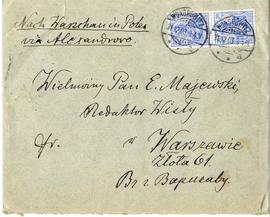 Nach Warschau in Polen
via Alexandrowo.
Wielmożny Pan E. Majewski,
Redaktor Wisły
fr. w Warszawie
Złota 61.
Вг г. Варшаву